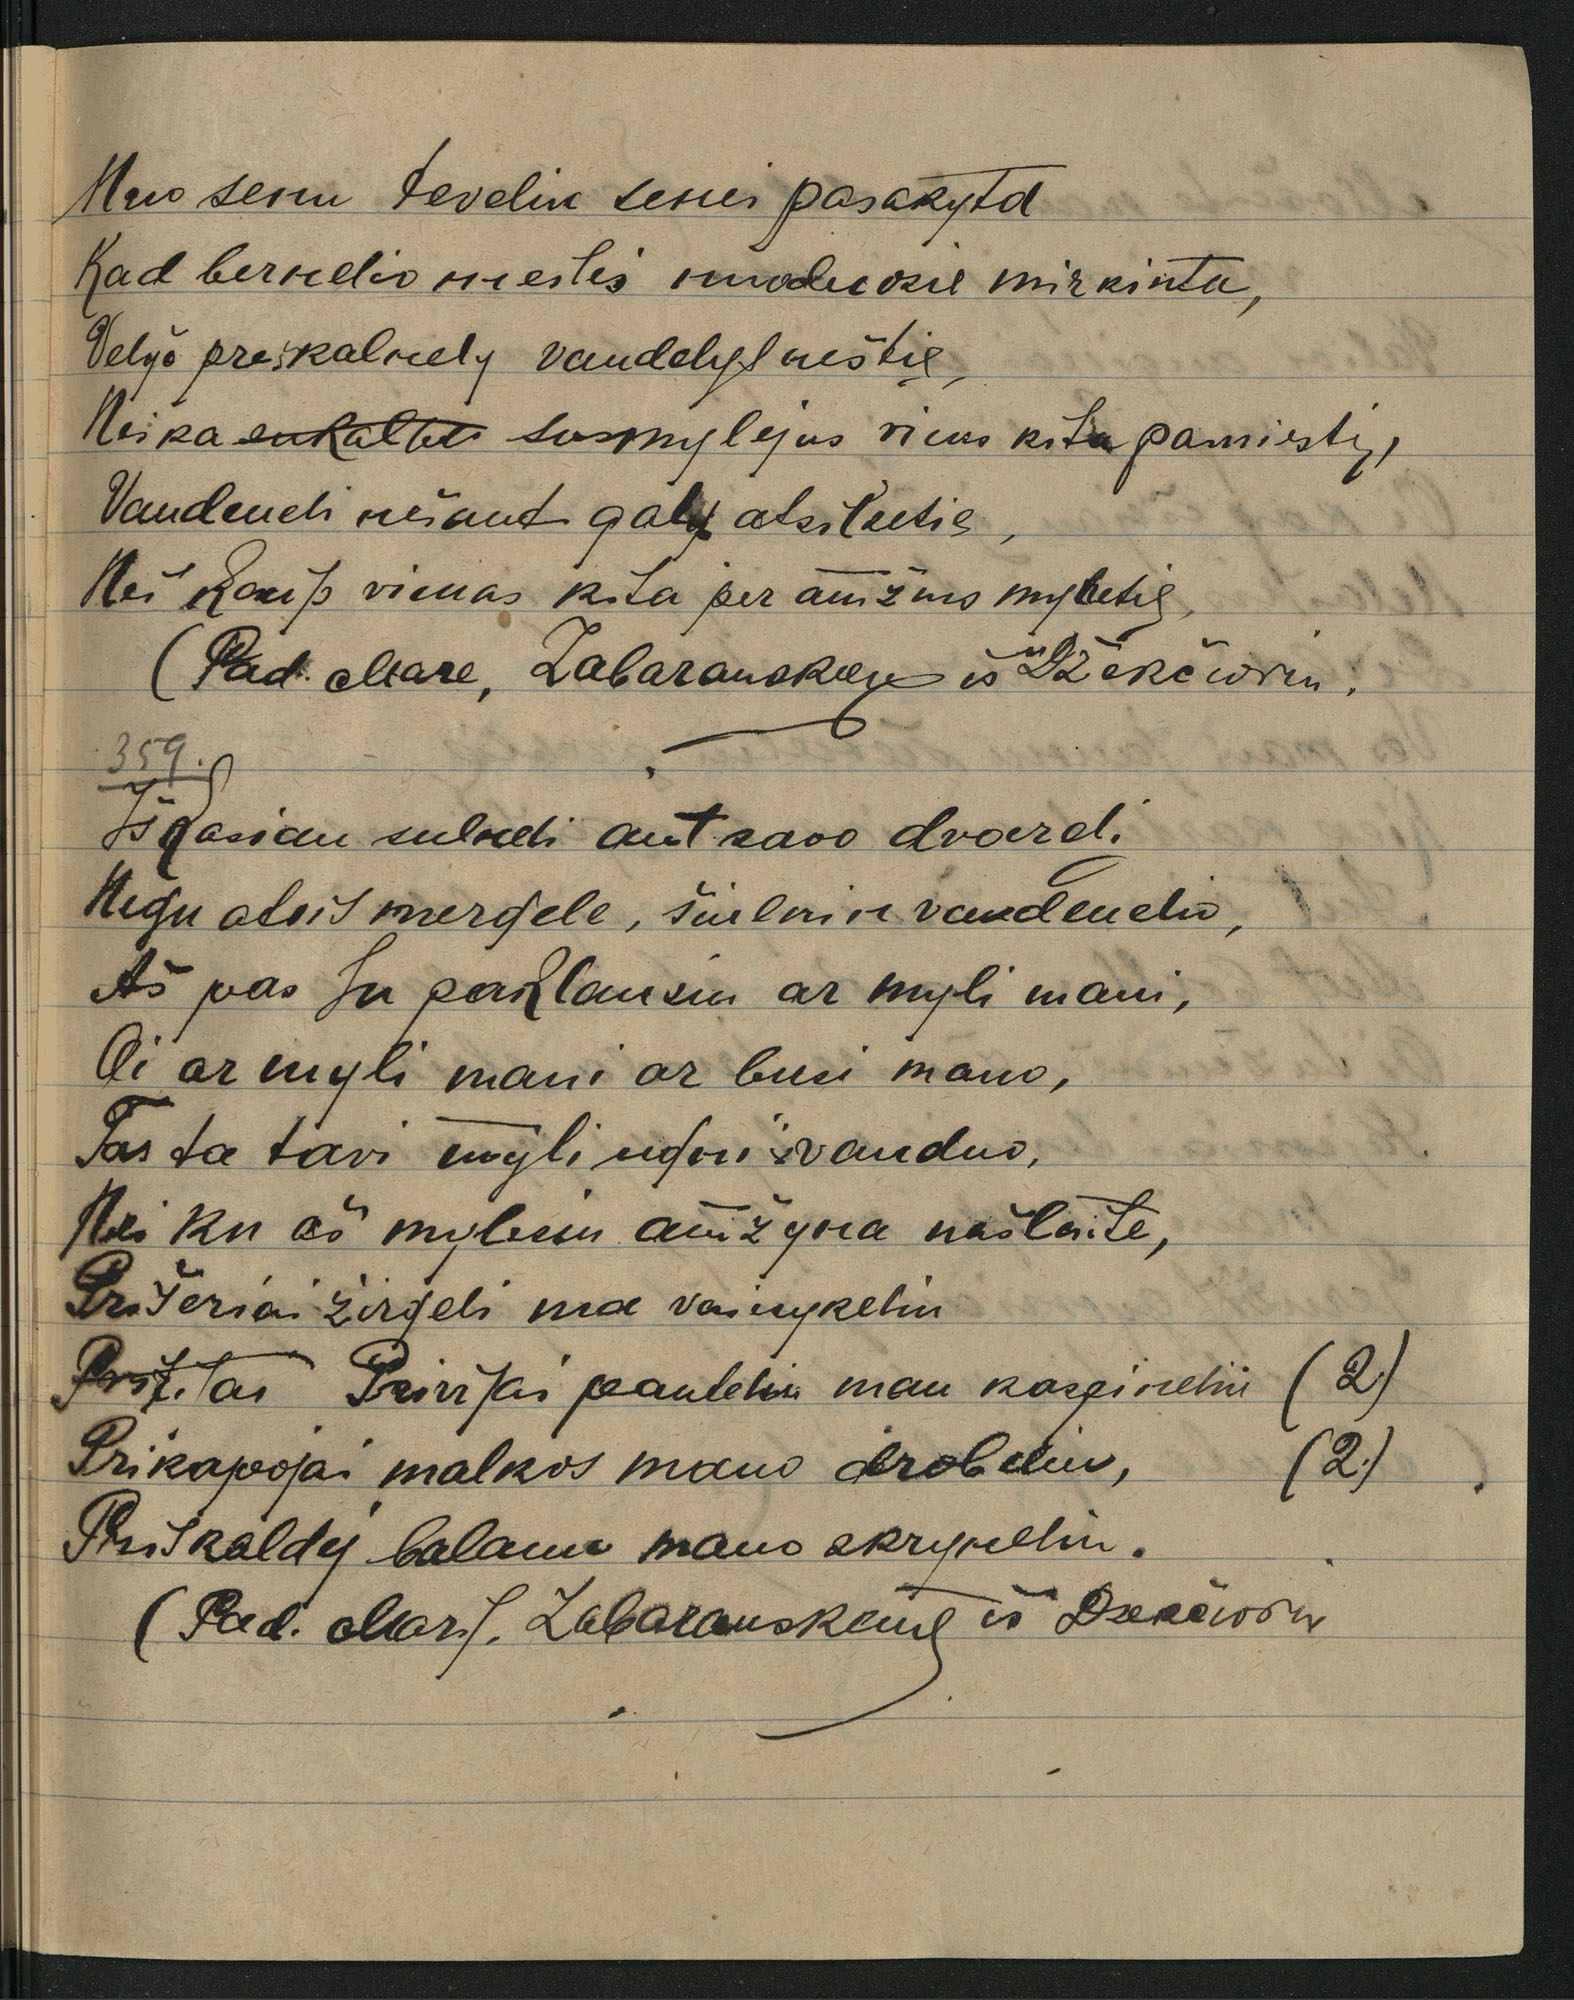 Nuo senu teveliu senei pasakyta
Kad bernelio meilės nuoduose mirkinta,
Velyč preš kalnely vandelys neštie,
Neika sukalbti susmylėjus viens kitu pamiesti,
Vandeneli nešant galy atsilsetie,
Nei kaip vienas kita per amžius myletie,
(Pad. Mare, Zabaranskene iš Džekčioriu.
359.
Iškasiau šulneli ant savo dvareli
Negu ateis mergele, šiulniu vandenelio,
Aš pas Ju paklausiu ar myli mani,
Oi ar myli mani ar busi mano,
Tas ta tavi myli ugni vanduo,
Nei ku aš mylesiu amžyna našlaite,
Prišeriai žirgeli ma vainykeliu
Prižitai Pririšai panteliu man kaspineliu (2)
Prikapojai malkos mano drobeliu, (2)
Priskaldy balanu mano skryneliu.
(Pad. Marij. Zabaranskene iš Dzekčioriu